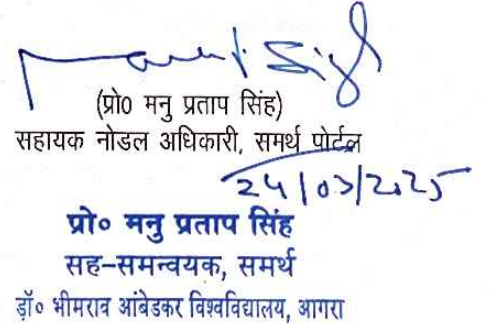 (प्रो० मनु प्रताप सिंह)
सहायक नोडल अधिकारी, समर्थ पोर्टल
24/03/2025
प्रो० मनु प्रताप सिंह
सह-समन्वयक, समर्थ
डॉ० भीमराव आंबेडकर विश्वविद्यालय, आगरा